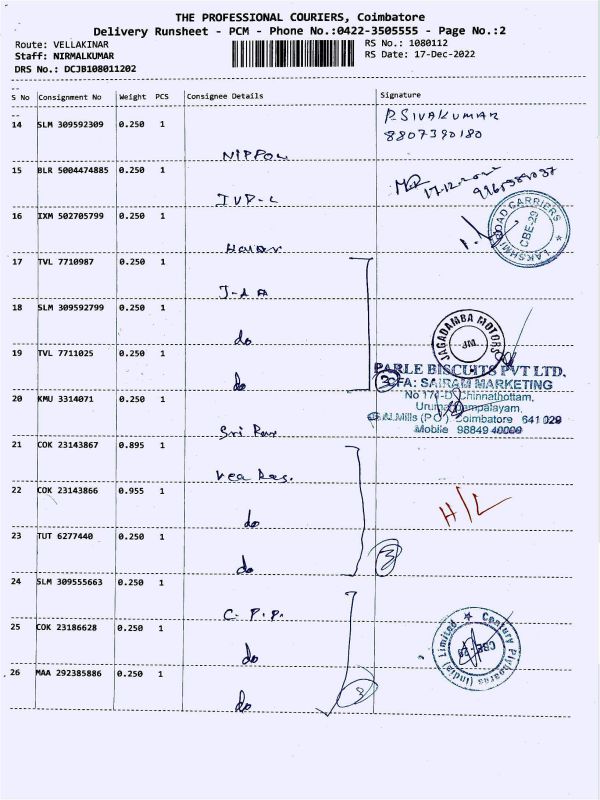 THE PROFESSIONAL COURIERS, Coimbatore
Delivery Runsheet - PCM - Phone No.:0422-3505555 - Page No.:2
Route: VELLAKINAR
RS No.: 1080112
Staff: NIRMALKUMAR
RS Date: 17-Dec-2022
DRS No.: DCJB108011202
S No Consignment No Weight PCS Consignee Details Signature
14 SLM 309592309 0.250 1
P.SIVAKUMAR
8807390180
NIPPON
15 BLR 5004474885 0.250 1
17.12.2022
IVP-L
16 IXM 502705799 0.250 1
LAKSHMI ROAD CARRIERS
CBE-29
17 TVL 7710987 0.250 1
J-LA
18 SLM 309592799 0.250 1
do
JAGADAMBA MOTORS
JM
19 TVL 7711025 0.250 1
do
3
PARLE BISCUITS PVT LTD.
CFA: SAIRAM MARKETING
No 171-D, Chinnathottam,
Urumandampalayam,
G.N.Mills (P.O), Coimbatore 641 029
Mobile 98849 40000
20 KMU 3314071 0.250 1
Sri Ram
21 COK 23143867 0.895 1
22 COK 23143866 0.955 1
do
H/L
23 TUT 6277440 0.250 1
do
3
24 SLM 309555663 0.250 1
C.P.P.
25 COK 23186628 0.250 1
do
Century Plyboards (India) Limited
26 MAA 292385886 0.250 1
do
3